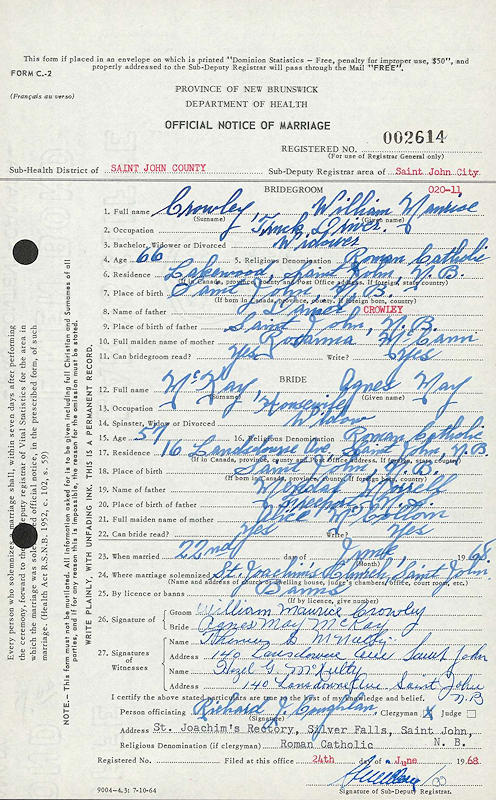 This form if placed in an envelope on which is printed "Dominion Statistics – Free, penalty for improper use, $50", and
properly addressed to the Sub-Deputy Registrar will pass through the Mail "FREE".
FORM C.-2
(Français au verso)
PROVINCE OF NEW BRUNSWICK
DEPARTMENT OF HEALTH
OFFICIAL NOTICE OF MARRIAGE
REGISTERED NO. 002614
(For use of Registrar General only)
Sub-Health District of SAINT JOHN COUNTY Sub-Deputy Registrar area of Saint John City
BRIDEGROOM 020-11
1. Full name Crowley, William
(Surname) (Given name)
2. Occupation Truck Driver.
3. Bachelor, Widower or Divorced Widower
4. Age 66 5. Religious Denomination Roman Catholic
6. Residence Lakewood, Saint John, N.B.
(If in Canada, province, county and Post Office address. If foreign, state country)
7. Place of birth Saint John, N.B.
(If born in Canada, province, county. If foreign born, country)
8. Name of father Daniel CROWLEY
9. Place of birth of father Saint John, N.B.
10. Full maiden name of mother Rosanna McCann
11. Can bridegroom read? Yes Write? Yes
BRIDE
12. Full name McKay, Agnes May
(Surname) (Given name)
13. Occupation Housewife
14. Spinster, Widow or Divorced Widow
15. Age 57 16. Religious Denomination Roman Catholic
17. Residence 16 Lansdowne Ave, Saint John, N.B.
(If in Canada, province, county and Post Office address. If foreign, state country)
18. Place of birth Saint John, N.B.
(If born in Canada, province, county. If foreign born, country)
19. Name of father
20. Place of birth of father
21. Full maiden name of mother
22. Can bride read? Yes Write? Yes
23. When married 22nd day of June 1968
(Month)
24. Where marriage solemnized St. Joachim's Church, Saint John
(Name and address of church, dwelling house, judge's chambers, office, court room, etc.)
25. By licence or banns Banns
(If by licence, give number)
26. Signature of Groom William Maurice Crowley
Bride Agnes May McKay
27. Signatures of Witnesses Name McNulty
Address 140 Lansdowne Ave Saint John
Name Hazel G. McNulty
Address 140 Lansdowne Ave. Saint John N.B
I certify the above stated particulars are true to the best of my knowledge and belief.
Person officiating Richard J. Coughlan. Clergyman X Judge
(Signature)
Address St. Joachim's Rectory, Silver Falls, Saint John,
N. B.
Religious Denomination (if clergyman) Roman Catholic
Registered No. Filed at this office 24th day of June 1968
9004-4.3: 7-10-64
Signature of Sub-Deputy Registrar.
Every person who solemnizes a marriage shall, within seven days after performing
the ceremony, forward to the deputy registrar of Vital Statistics for the area in
which the marriage was solemnized official notice, in the prescribed form, of such
marriage. (Health Act R.S.N.B. 1952, c. 102, s. 59)
NOTE.—This form must not be mutilated. All information asked for is to be given including full Christian and Surnames of all
parties, and if for any reason this is impossible, the reason for the omission must be stated.
WRITE PLAINLY, WITH UNFADING INK. THIS IS A PERMANENT RECORD.